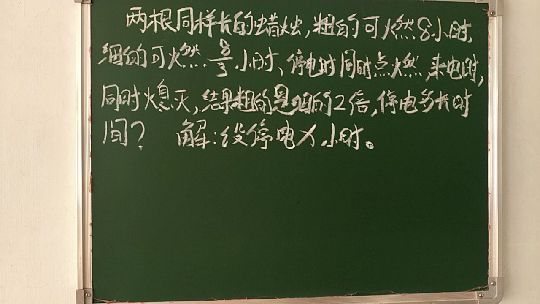 两根同样长的蜡烛,粗的可燃8小时,
细的可燃 8/3 小时,停电时同时点燃,来电时,
同时熄灭,结果粗的是细的2倍,停电多长时
间? 解:设停电x小时。